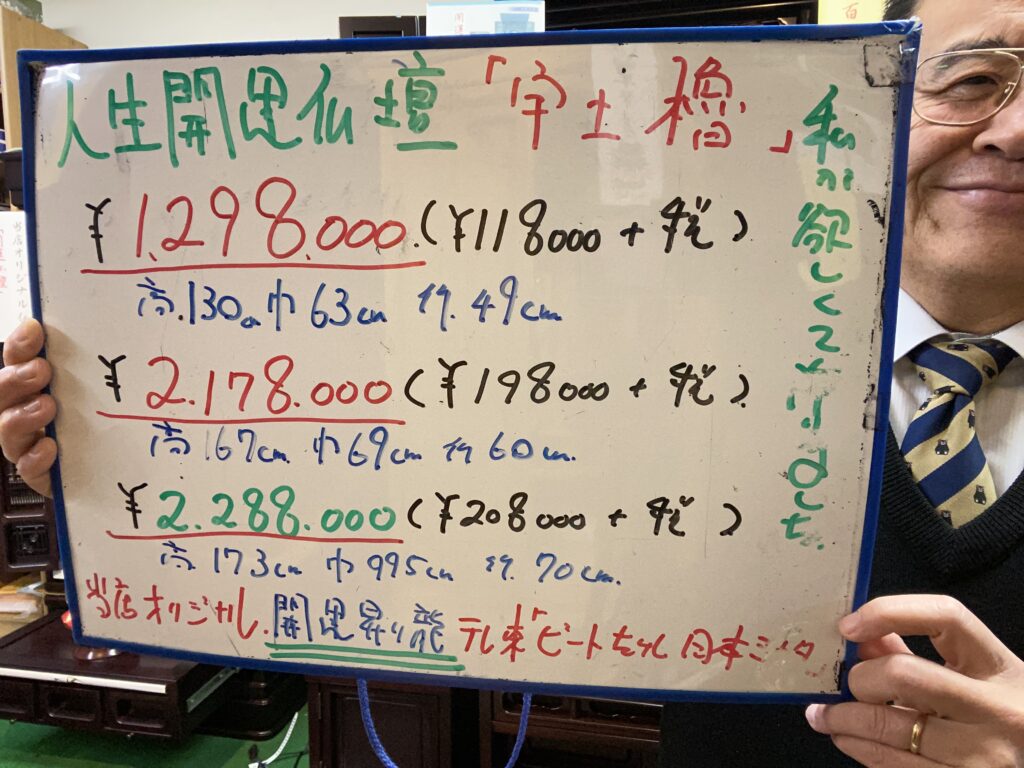 人生開運仏壇「宇土櫓」
¥1,298,000.(¥118000+税)
高.130cm巾63cm 行.49cm
¥2.178.000(¥198000+税)
高167cm巾69cm行60cm.
¥2.288.000(¥208000+税)
高173cm巾995cm行.70cm.
当店オリジナル.開運昇り龍 テレ東「ビートたけし日本ミック
私が欲しくて作りました